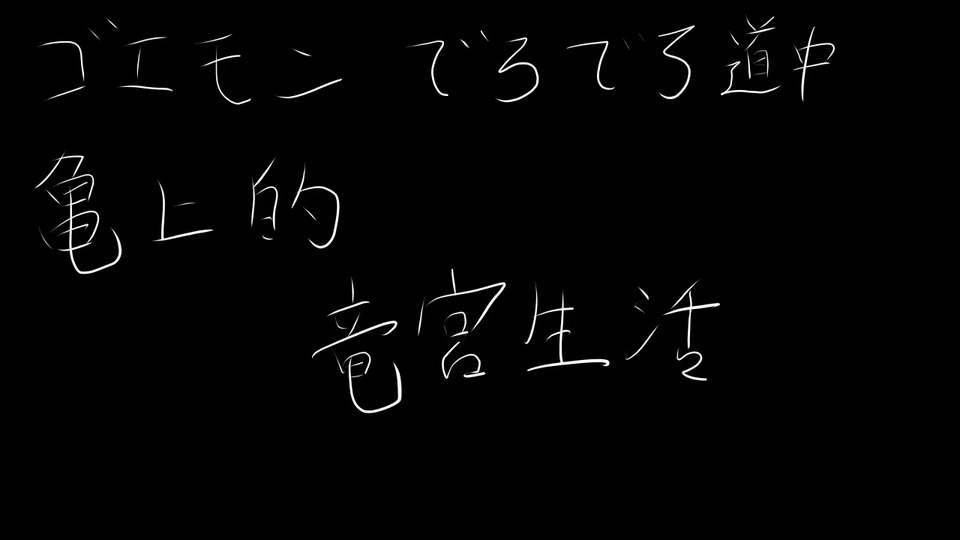 ゴエモン でろでろ道中
亀上的
竜宮生活